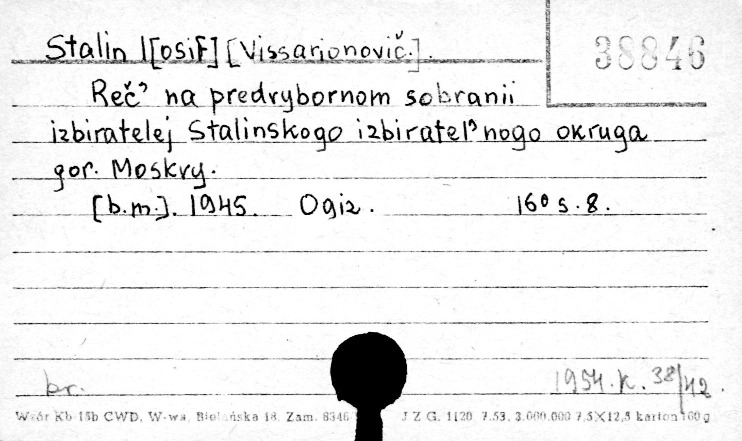 Stalin I[osif] [Vissarionovič.].
38846
Reč' na predvybornom sobranii
izbiratelej Stalinskogo izbiratel'nogo okruga
gor. Moskvy.
[b.m.]. 1945. Ogiz. 16° s. 8.
br. 1954. K. 38/42.
Wzór Kb 15b CWD, W-wa, Bielańska 18. Zam. 8346 J Z G. 1120 7.53. 3.000.000 7,5X12,5 karton 160 g